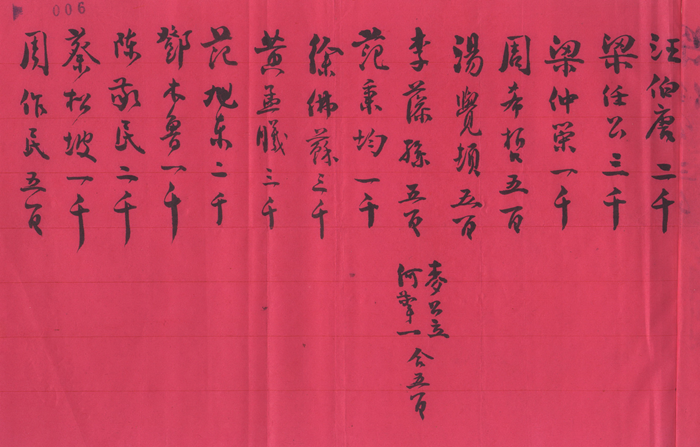 006
汪伯唐二千
梁任公三千
梁仲策一千
周希哲五百
湯覺頓五百
李藻孫五百
麥公立
何擎一 合五百
范秉均一千
徐佛蘇三千
黃孟曦三千
范旭東二千
鄧木魯一千
陳敬民二千
蔡松坡一千
周作民五百